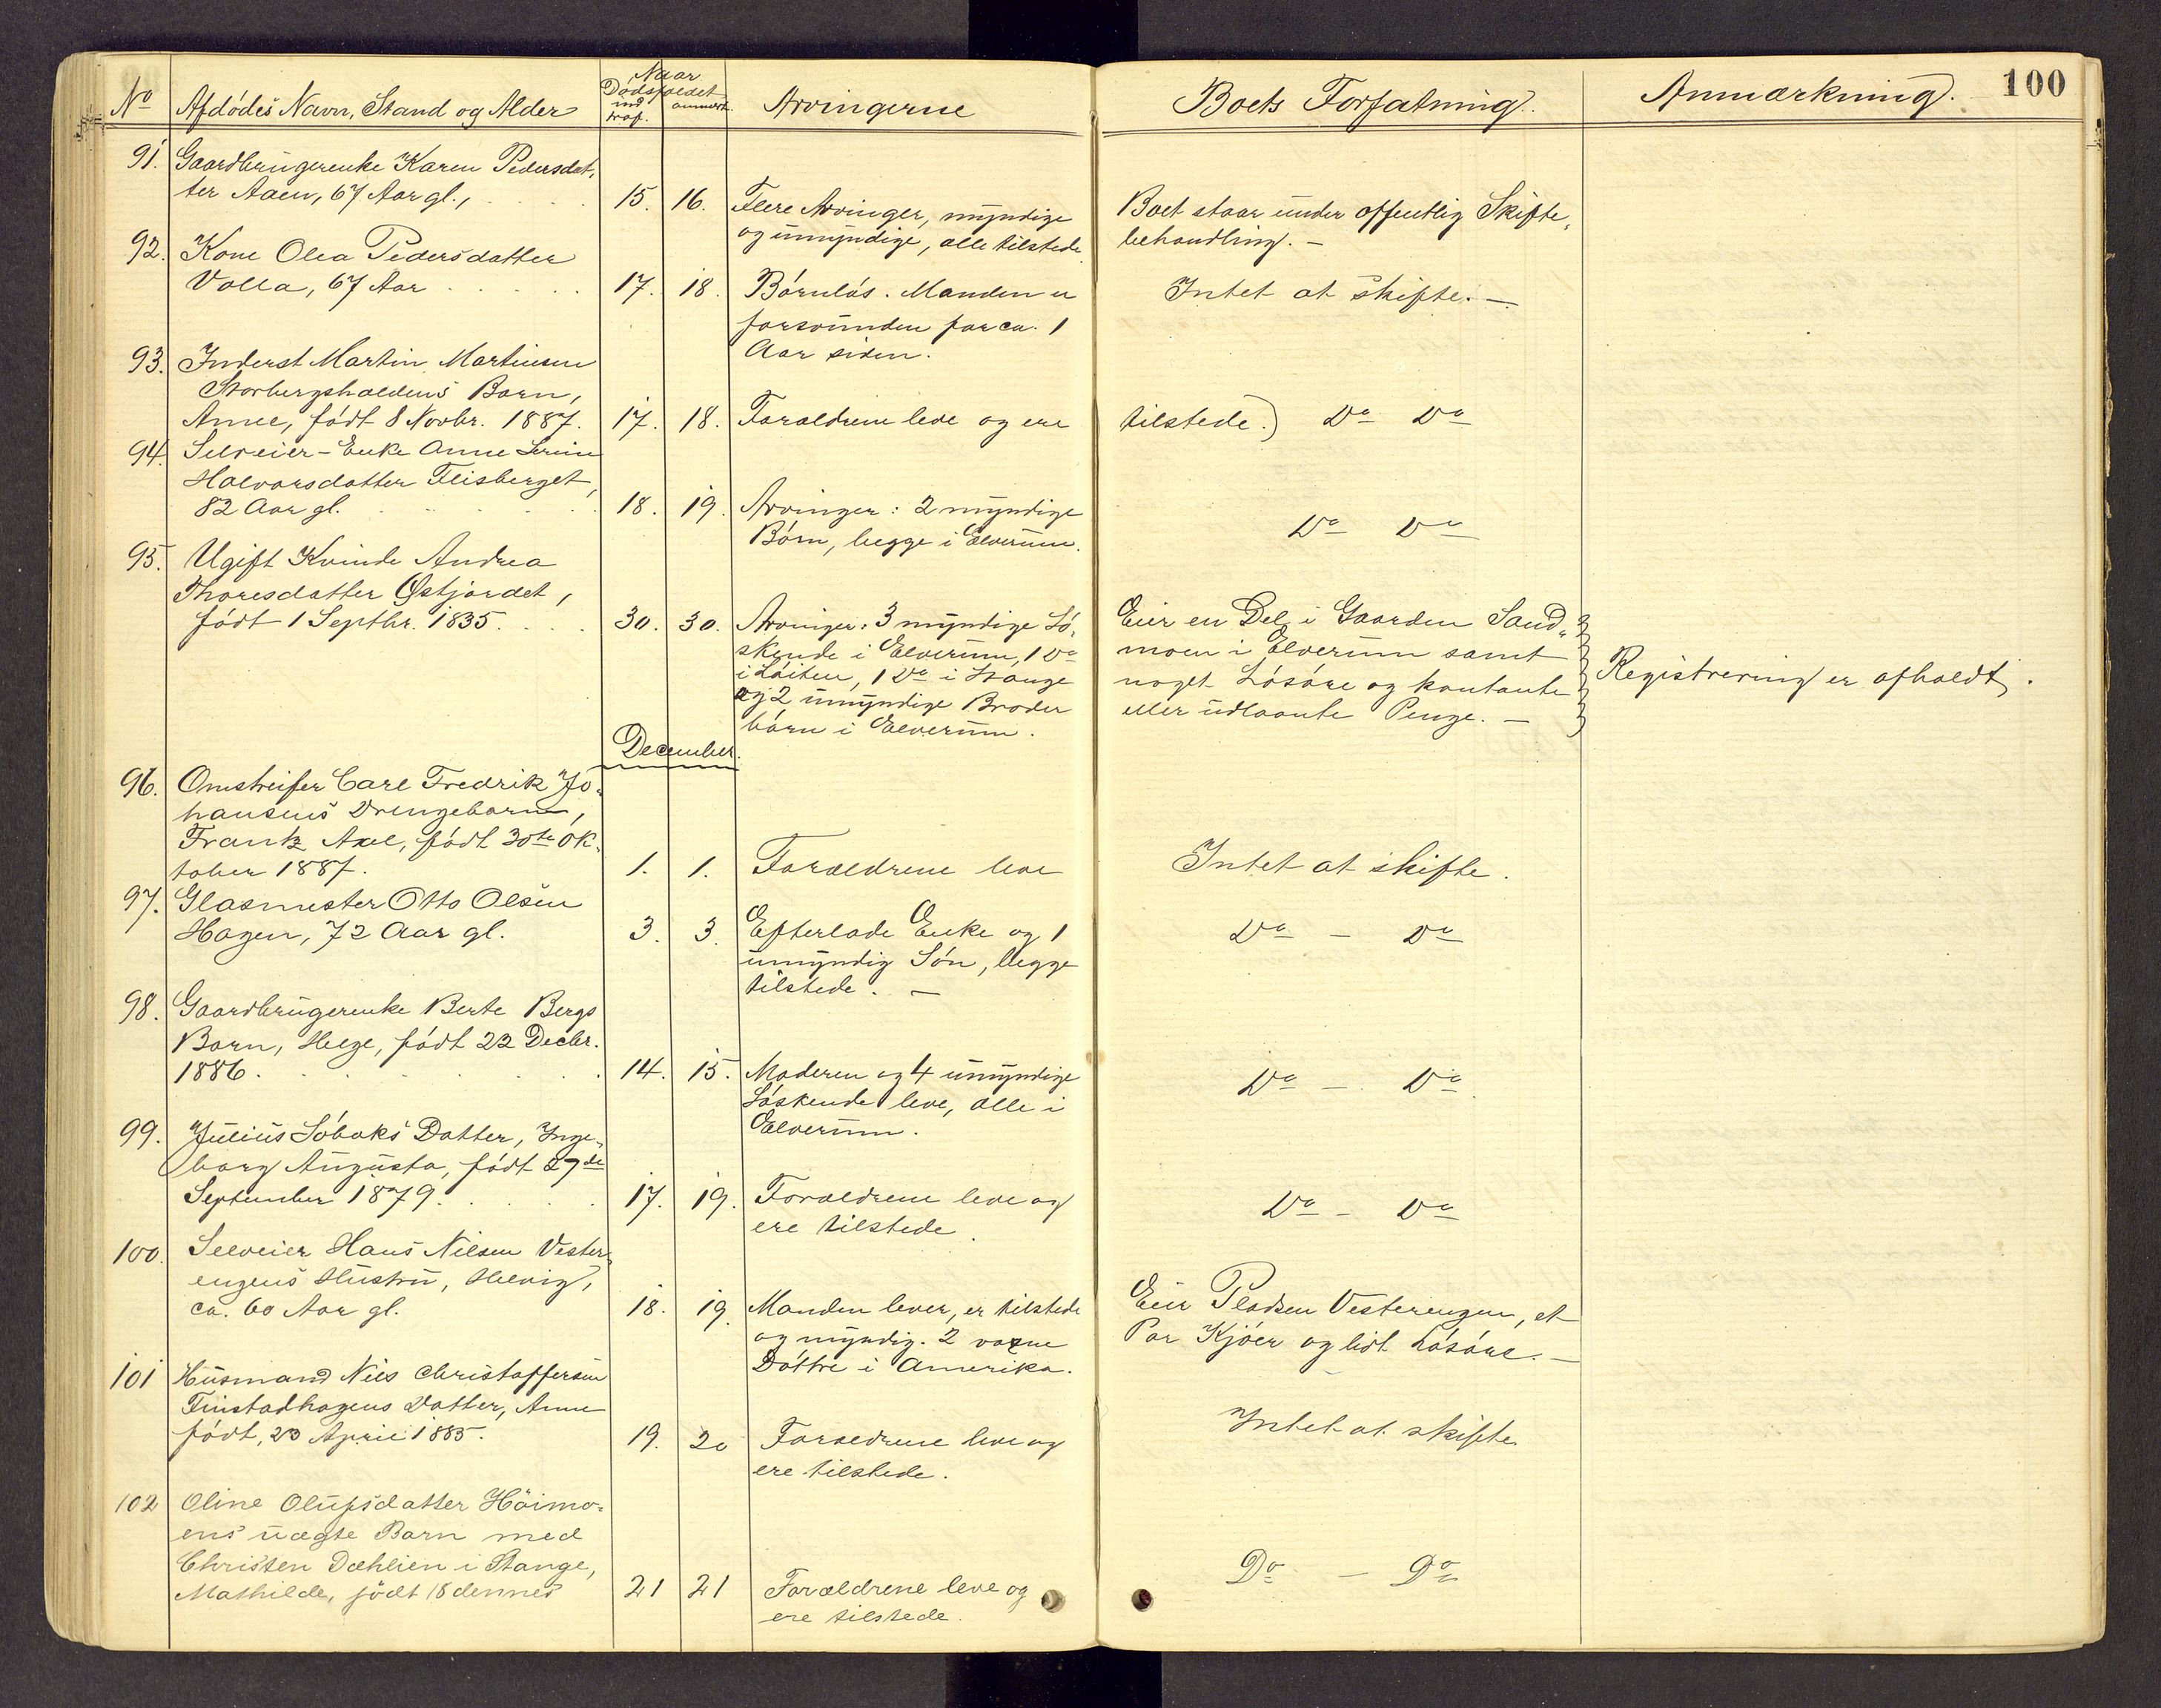 No
Afdødes Navn, Stand og Alder
Naar
Dødsfaldet
indtraf.
anmeldt.
Arvingerne
Boets Forfatning.
Anmærkning.
100
91. Gaardbrugerenke Karen Pedersdat-
ter Aaen, 67 Aar gl., 15. 16. Flere Arvinger, myndige
og umyndige, alle tilstede.
Boet staar under offentlig Skifte-
behandling. —
92. Kone Olea Pedersdatter
Volla, 67 Aar 17. 18. Børnløs. Manden er
forsvunden for ca. 1
Aar siden.
Intet at skifte. —
93. Inderst Martin Martinsen
Storbergshaldens Barn,
Anne, født 8 Novbr. 1887. 17. 18. Forældrene leve og ere
tilstede.) Do Do
94. Selveier-Enke Anne Serine
Halvorsdatter Fleisberget,
82 Aar gl. 18. 19. Arvinger: 2 myndige
Børn, begge i Elverum.
Do Do
95. Ugift Kvinde Andrea
Thoresdatter Østjordet,
født 1 Septbr. 1835. 30. 30. Arvinger: 3 myndige Sø-
skende i Elverum, 1 Do
i Løiten, 1 Do i Stange
og 2 umyndige Broder
børn i Elverum.
Eier en Del i Gaarden Sand-
moen i Elverum samt
noget Løsøre og kontante
eller udlaante Penge. —
Registrering er afholdt.
December.
96. Omstreifer Carl Fredrik Jo-
hansens Drengebarn,
Frantz Axel, født 30te Ok-
tober 1887. 1. 1. Forældrene leve
Intet at skifte.
97. Glasmester Otto Olsen
Hagen, 72 Aar gl. 3. 3. Efterlade Enke og 1
umyndig Søn, begge
tilstede. —
Do — Do
98. Gaardbrugerenke Berte Bergs
Barn, Helge, født 22 Decbr.
1886. 14. 15. Moderen og 4 umyndige
Søskende leve, alle i
Elverum.
Do — Do
99. Julius Søbaks Datter, Inge-
borg Augusta, født 27de
September 1879. 17. 19. Forældrene leve og
ere tilstede.
Do — Do
100. Selveier Hans Nilsen Vester-
engens Hustru, Helvig,
ca. 60 Aar gl. 18. 19. Manden lever, er tilstede
og myndig. 2 voxne
Døttre i Amerika.
Eier Pladsen Vesterengen, et
Par Kjøer og lidt Løsøre. —
101 Husmand Nils Christoffersen
Finstadhagens Datter, Anne
født, 23 April 1885. 19. 20 Forældrene leve og
ere tilstede.
Intet at skifte
102 Oline Olufsdatter Höimo-
ens uægte Barn med
Christen Dæhlien i Stange,
Mathilde, født 18 dennes 21 21 Forældrene leve og
ere tilstede.
Do — Do